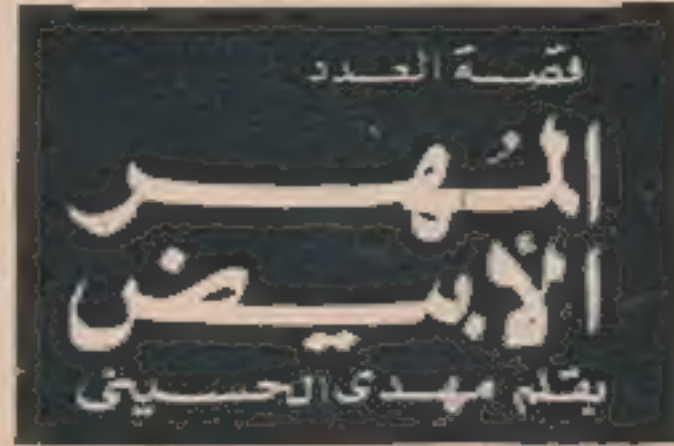 قصة العدد
المُهر
الأبيض
بقلم مهدى الحسينى